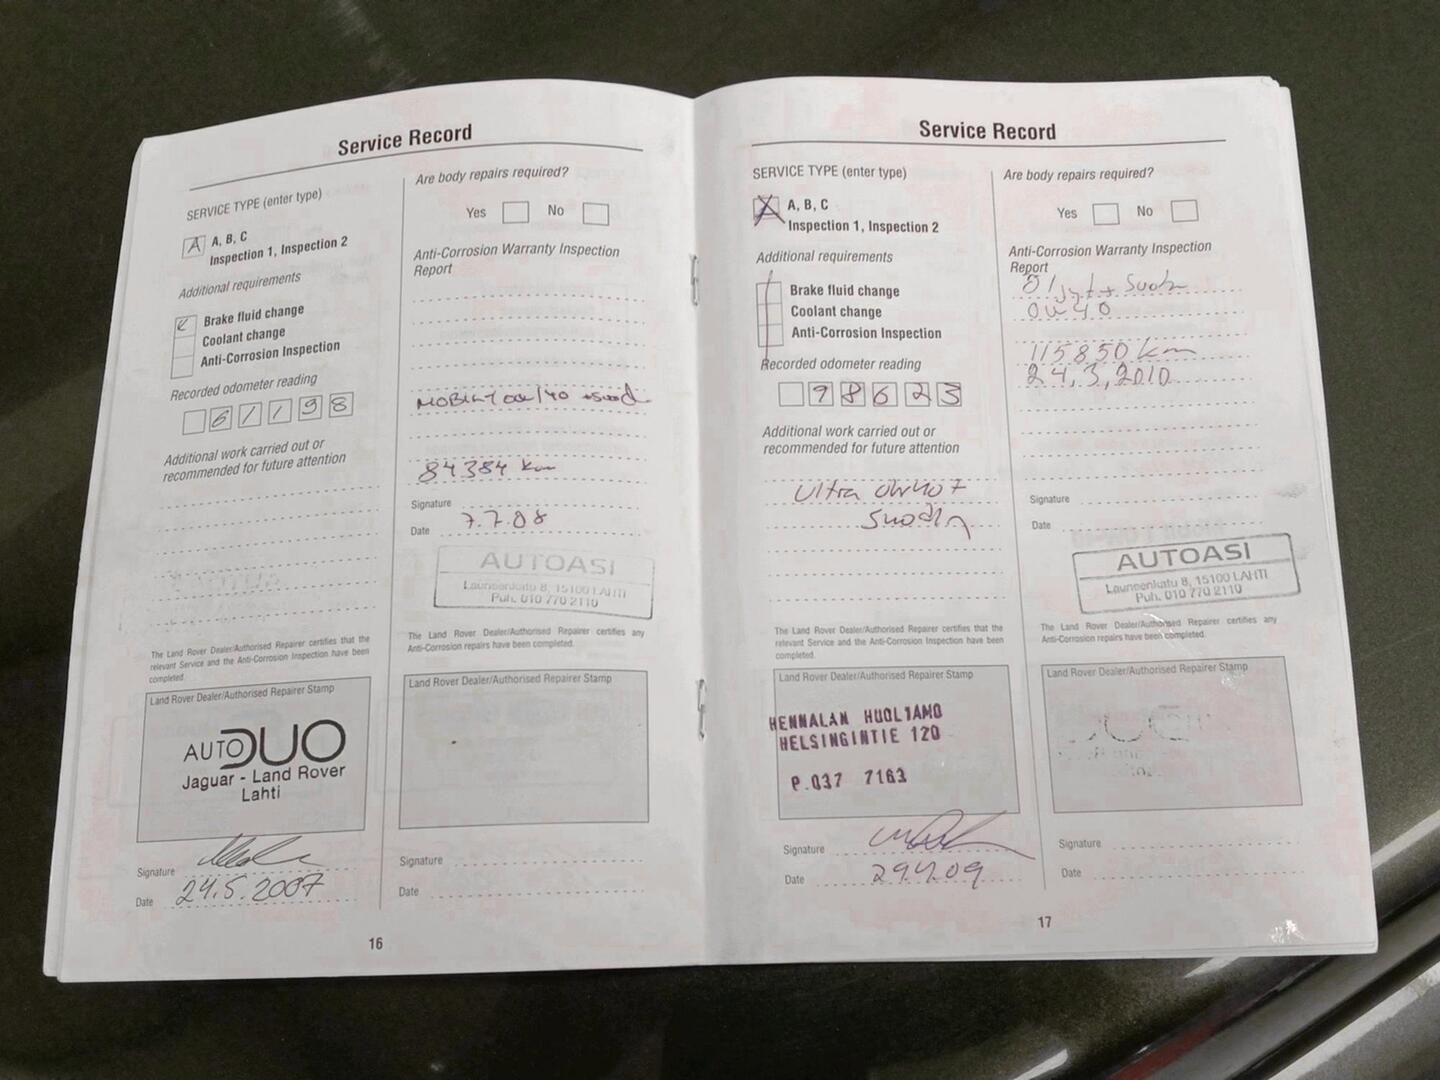 Service Record
SERVICE TYPE (enter type)
A
A, B, C
Inspection 1, Inspection 2
Additional requirements
Brake fluid change
Coolant change
Anti-Corrosion Inspection
Recorded odometer reading
61198
Additional work carried out or
recommended for future attention
The Land Rover Dealer/Authorised Repairer certifies that the
relevant Service and the Anti-Corrosion Inspection have been
completed.
Land Rover Dealer/Authorised Repairer Stamp
AUTO DUO
Jaguar - Land Rover
Lahti
Signature
Date 24.5.2007
Are body repairs required?
Yes No
Anti-Corrosion Warranty Inspection
Report
84384 km
Signature
Date 7.7.08
AUTOASI
Launeenkatu 8, 15100 LAHTI
Puh. 010 770 2110
The Land Rover Dealer/Authorised Repairer certifies any
Anti-Corrosion repairs have been completed.
Land Rover Dealer/Authorised Repairer Stamp
Signature
Date
16
Service Record
SERVICE TYPE (enter type)
A, B, C
Inspection 1, Inspection 2
Additional requirements
Brake fluid change
Coolant change
Anti-Corrosion Inspection
Recorded odometer reading
98623
Additional work carried out or
recommended for future attention
Ultra
The Land Rover Dealer/Authorised Repairer certifies that the
relevant Service and the Anti-Corrosion Inspection have been
completed.
Land Rover Dealer/Authorised Repairer Stamp
HENNALAN HUOLTAMO
HELSINGINTIE 120
P.037 7163
Signature
Date
Are body repairs required?
Yes No
Anti-Corrosion Warranty Inspection
Report
0W40
115850 km
24.3.2010
Signature
Date
AUTOASI
Launeenkatu 8, 15100 LAHTI
Puh. 010 770 2110
The Land Rover Dealer/Authorised Repairer certifies any
Anti-Corrosion repairs have been completed.
Land Rover Dealer/Authorised Repairer Stamp
Signature
Date
17